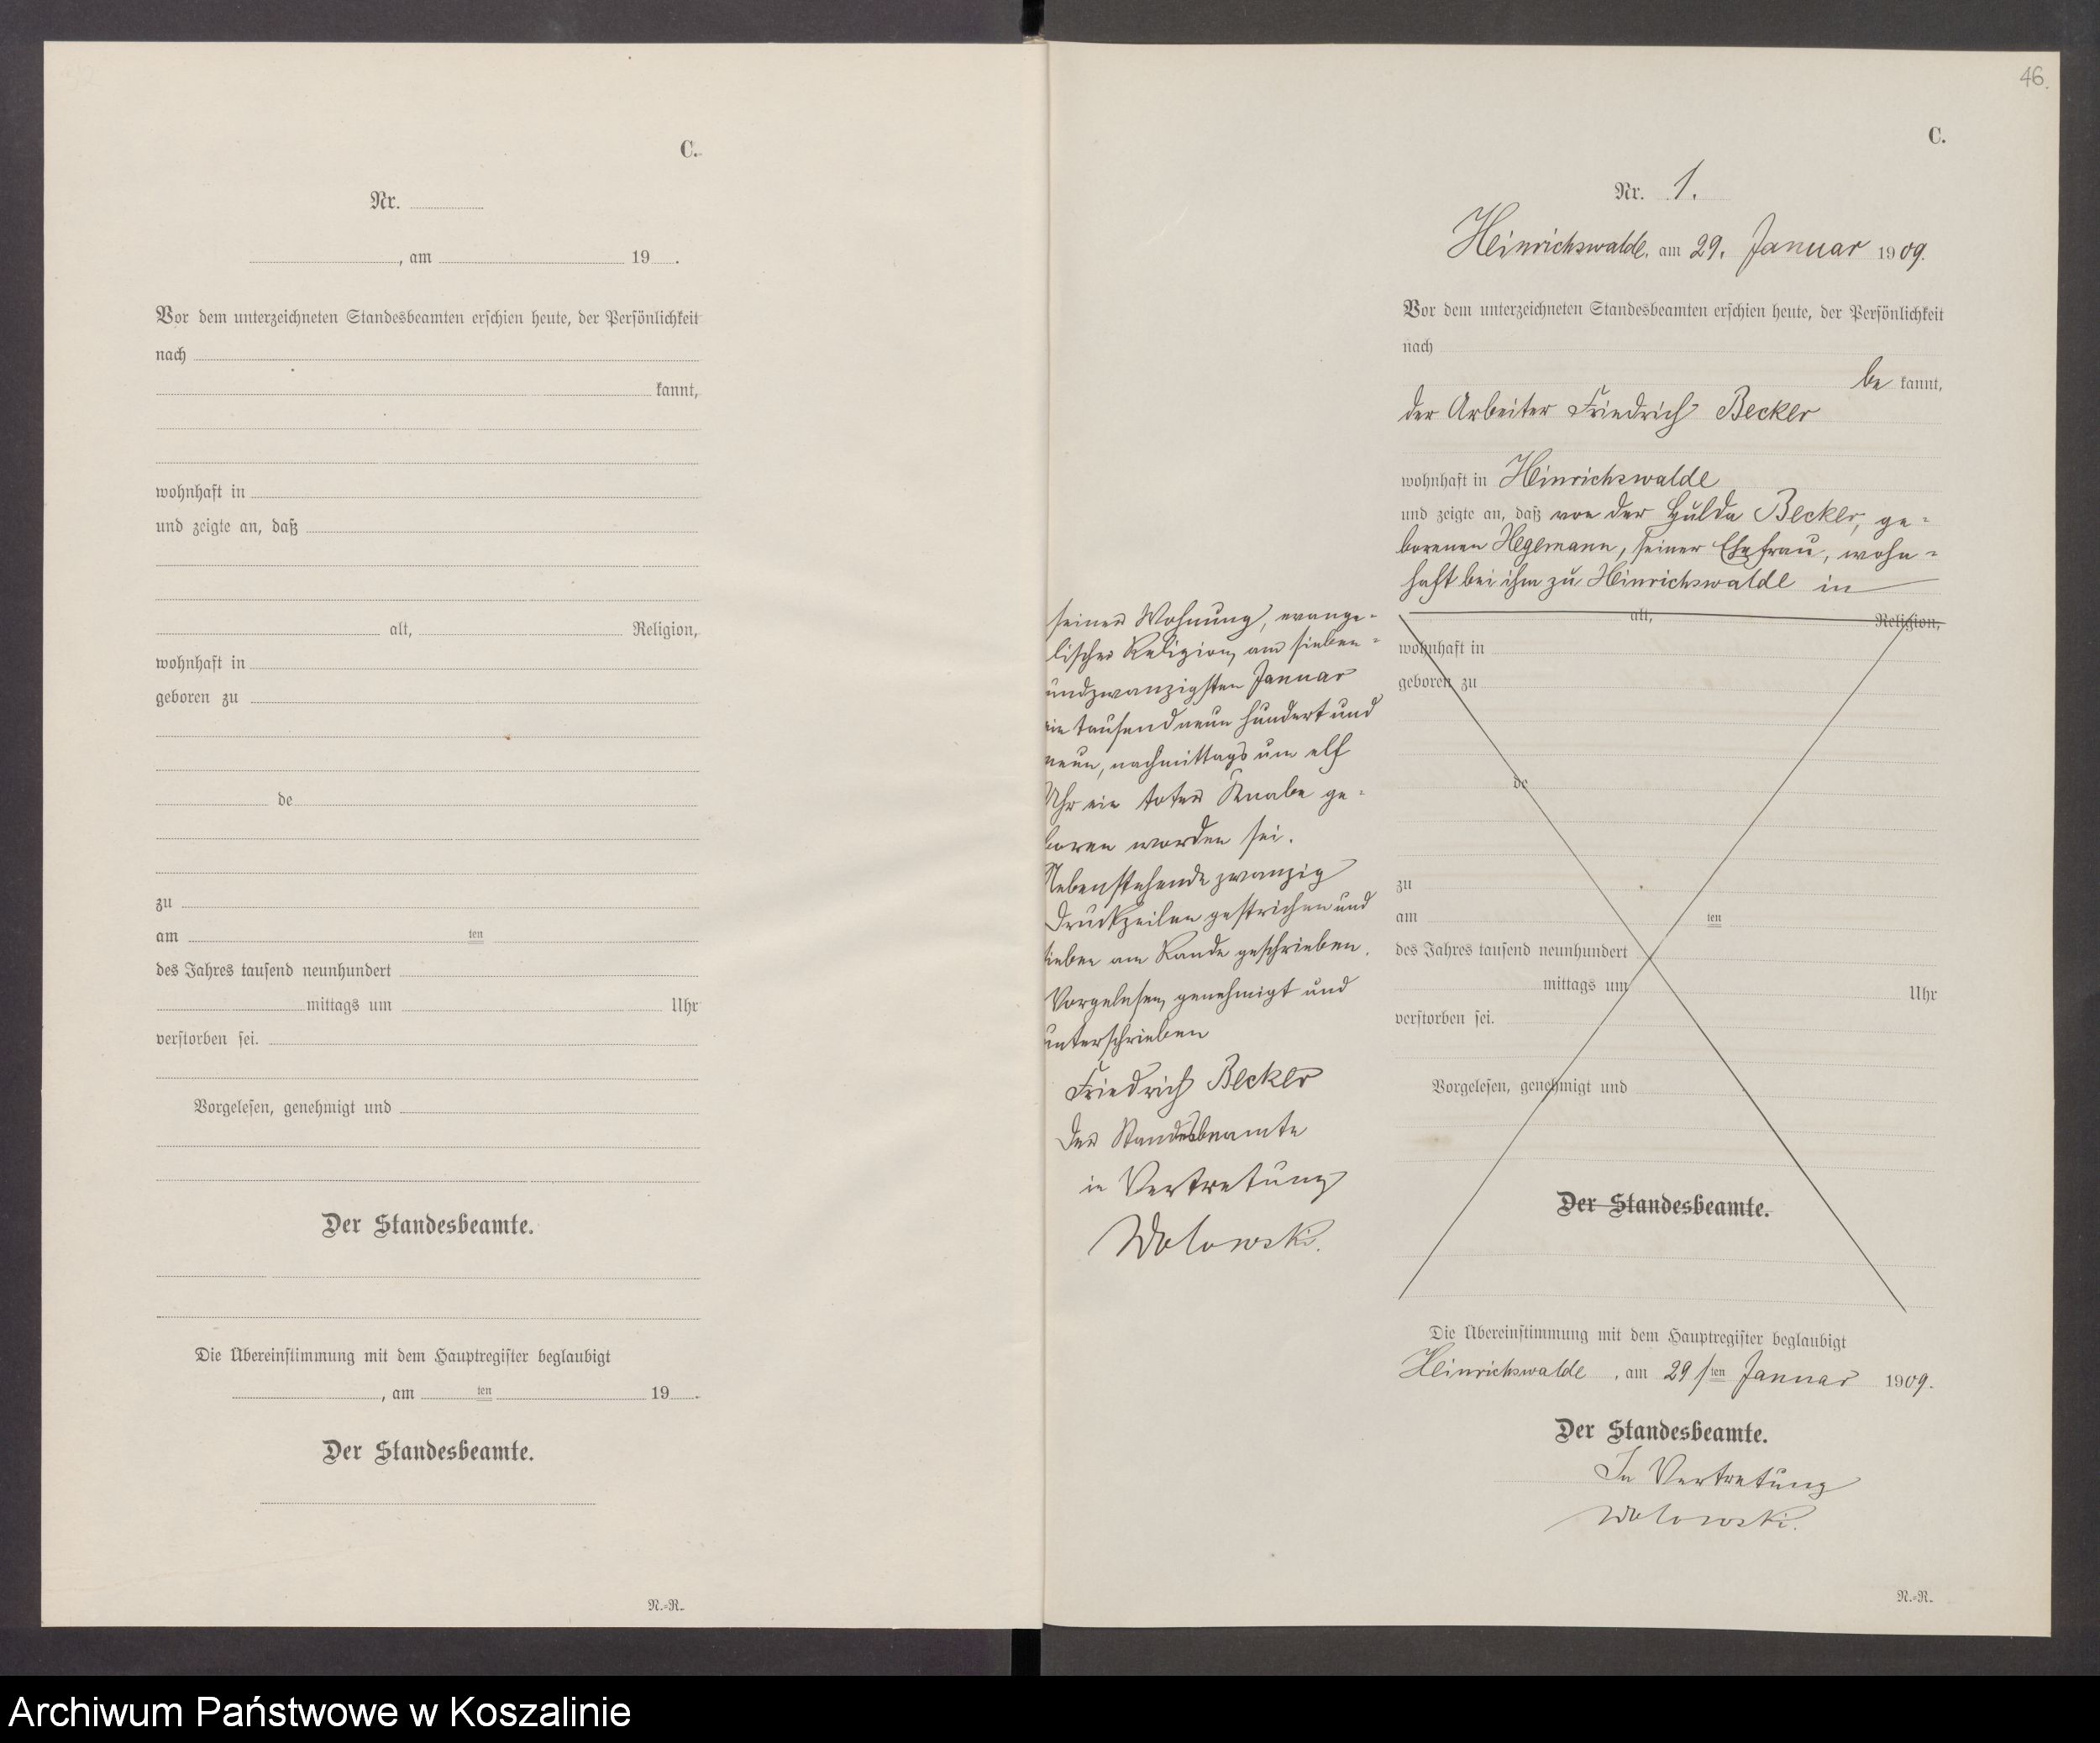 C.
Nr.
, am 19 .
Vor dem unterzeichneten Standesbeamten erschien heute, der Persönlichkeit
nach
kannt,
wohnhaft in
und zeigte an, daß
alt, Religion,
wohnhaft in
geboren zu
de
zu
am ten
des Jahres tausend neunhundert
mittags um Uhr
verstorben sei.
Vorgelesen, genehmigt und
Der Standesbeamte.
Die Übereinstimmung mit dem Hauptregister beglaubigt
, am ten 19 .
Der Standesbeamte.
N.=R.
46.
C.
Nr. 1.
Heinrichswalde, am 29. Januar 1909.
Vor dem unterzeichneten Standesbeamten erschien heute, der Persönlichkeit
nach
be kannt,
der Arbeiter Friedrich Becker
wohnhaft in Heinrichswalde
und zeigte an, daß von der Hulda Becker, ge=
borenen Hegemann, seiner Ehefrau, wohn=
haft bei ihm zu Heinrichswalde in
alt, Religion,
wohnhaft in
geboren zu
de
zu
am ten
des Jahres tausend neunhundert
mittags um Uhr
verstorben sei.
Vorgelesen, genehmigt und
Der Standesbeamte.
seiner Wohnung, evange=
lischer Religion, am sieben=
undzwanzigsten Januar
ein tausend neun hundert und
neun, nachmittags um elf
Uhr ein toter Knabe ge=
boren worden sei.
Nebenstehende zwanzig
Druckzeilen gestrichen und
sieben am Rande geschrieben.
Vorgelesen, genehmigt und
unterschrieben
Friedrich Becker
Der Standesbeamte
in Vertretung
Wolowski.
Die Übereinstimmung mit dem Hauptregister beglaubigt
Heinrichswalde, am 29 sten Januar 1909.
Der Standesbeamte.
In Vertretung
Wolowski.
N.=R.
Archiwum Państwowe w Koszalinie